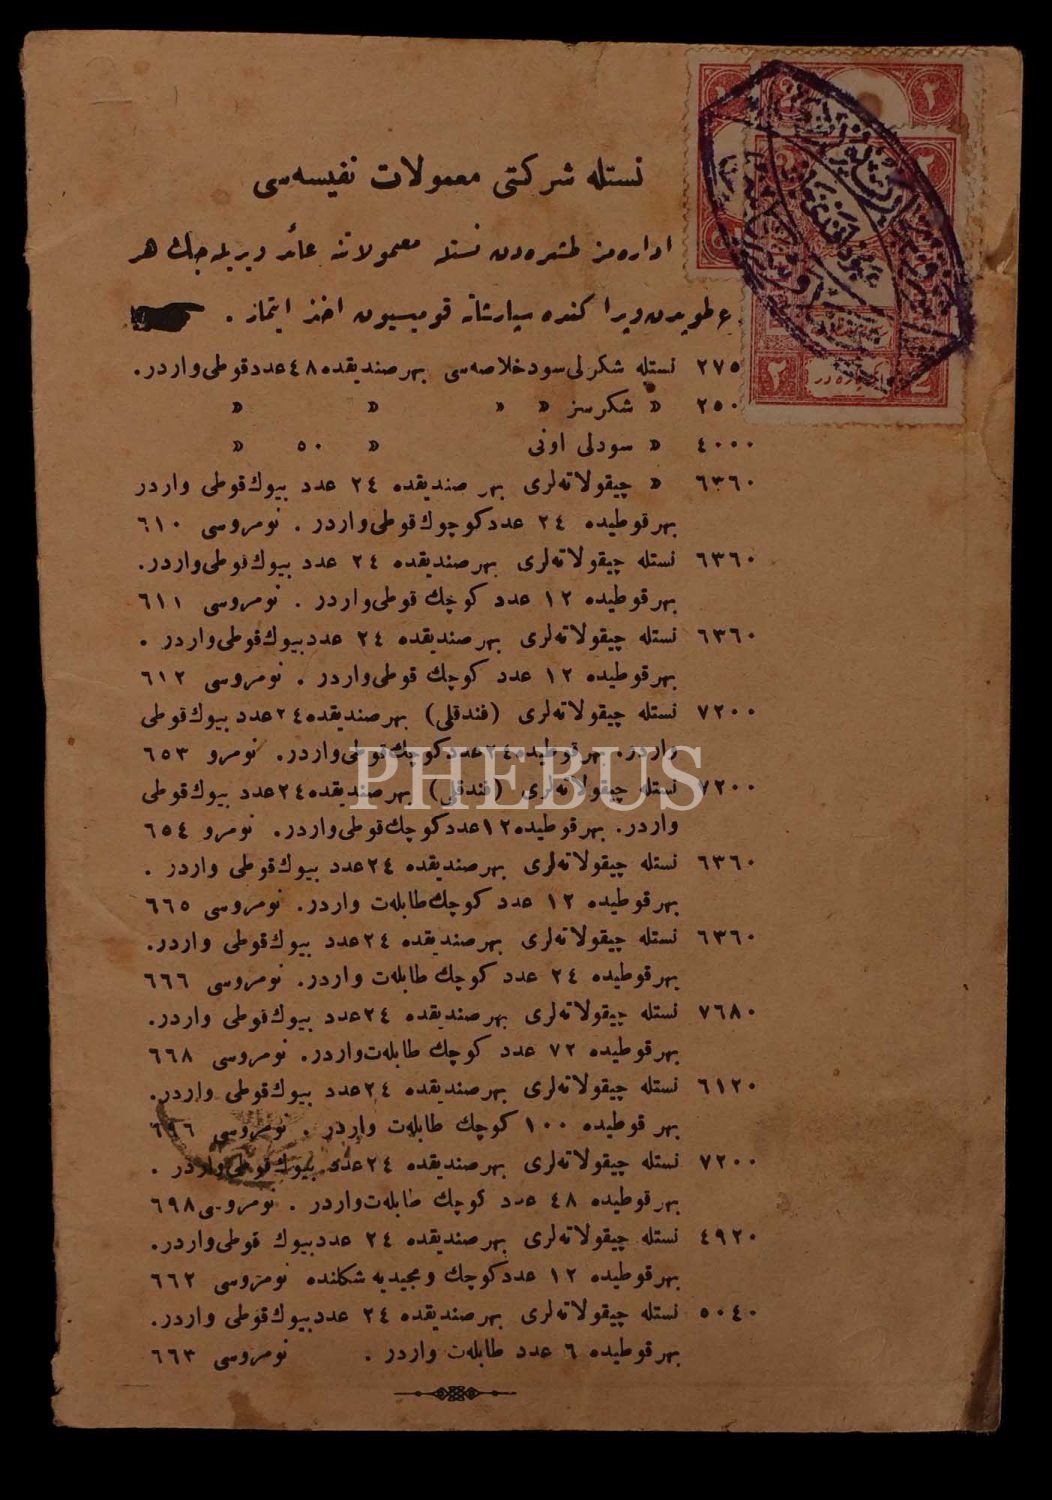 نستله شركتی معمولات نفیسه‌سی
اداره‌مز طشره‌دن نستله معمولاتنه عائد ویریله‌جك هر
سپارشاته قومیسیون اخذ ایتمز .
٢٧٥ نستله شكرلی سود خلاصه‌سی بهر صندیقده ٤٨ عدد قوطی واردر.
٢٥٠ » شكرسز » » » »
٤٠٠٠ » سودلی اونی » ٥٠ »
٦٣٦٠ » چیقولاته‌لری بهر صندیقده ٢٤ عدد بیوك قوطی واردر
بهر قوطیده ٢٤ عدد كوچوك قوطی واردر . نومروسی ٦١٠
٦٣٦٠ نستله چیقولاته‌لری بهر صندیقده ٢٤ عدد بیوك قوطی واردر.
بهر قوطیده ١٢ عدد كوچك قوطی واردر . نومروسی ٦١١
٦٣٦٠ نستله چیقولاته‌لری بهر صندیقده ٢٤ عدد بیوك قوطی واردر .
بهر قوطیده ١٢ عدد كوچك قوطی واردر . نومروسی ٦١٢
٧٢٠٠ نستله چیقولاته‌لری (فندقلی) بهر صندیقده ٢٤ عدد بیوك قوطی
واردر. بهر قوطیده ٢٤ عدد كوچك قوطی واردر. نومرو ٦٥٣
PHEBUS
٧٢٠٠ نستله چیقولاته‌لری (فندقلی) بهر صندیقده ٢٤ عدد بیوك قوطی
واردر. بهر قوطیده ١٢ عدد كوچك قوطی واردر. نومرو ٦٥٤
٦٣٦٠ نستله چیقولاته‌لری بهر صندیقده ٢٤ عدد بیوك قوطی واردر .
بهر قوطیده ١٢ عدد كوچك طابله‌ت واردر. نومروسی ٦٦٥
٦٣٦٠ نستله چیقولاته‌لری بهر صندیقده ٢٤ عدد بیوك قوطی واردر.
بهر قوطیده ٢٤ عدد كوچك طابله‌ت واردر. نومروسی ٦٦٦
٧٦٨٠ نستله چیقولاته‌لری بهر صندیقده ٢٤ عدد بیوك قوطی واردر.
بهر قوطیده ٧٢ عدد كوچك طابله‌ت واردر. نومروسی ٦٦٨
٦١٢٠ نستله چیقولاته‌لری بهر صندیقده ٢٤ عدد بیوك قوطی واردر.
بهر قوطیده ١٠٠ كوچك طابله‌ت واردر . نومروسی ٦٩٦
٧٢٠٠ نستله چیقولاته‌لری بهر صندیقده ٢٤ عدد بیوك قوطی واردر .
بهر قوطیده ٤٨ عدد كوچك طابله‌ت واردر . نومروسی ٦٩٨
٤٩٢٠ نستله چیقولاته‌لری بهر صندیقده ٢٤ عدد بیوك قوطی واردر.
بهر قوطیده ١٢ عدد كوچك و مجیدیه شكلنده نومروسی ٦٦٢
٥٠٤٠ نستله چیقولاته‌لری بهر صندیقده ٢٤ عدد بیوك قوطی واردر.
بهر قوطیده ٦ عدد طابله‌ت واردر . نومروسی ٦٦٣